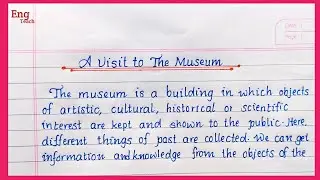 Eng
Teach
A Visit to The Museum
The museum is a building in which objects
of artistic, cultural, historical or scientific
interest are kept and shown to the public. Here,
different things of past are collected. We can get
information and knowledge from the objects of the